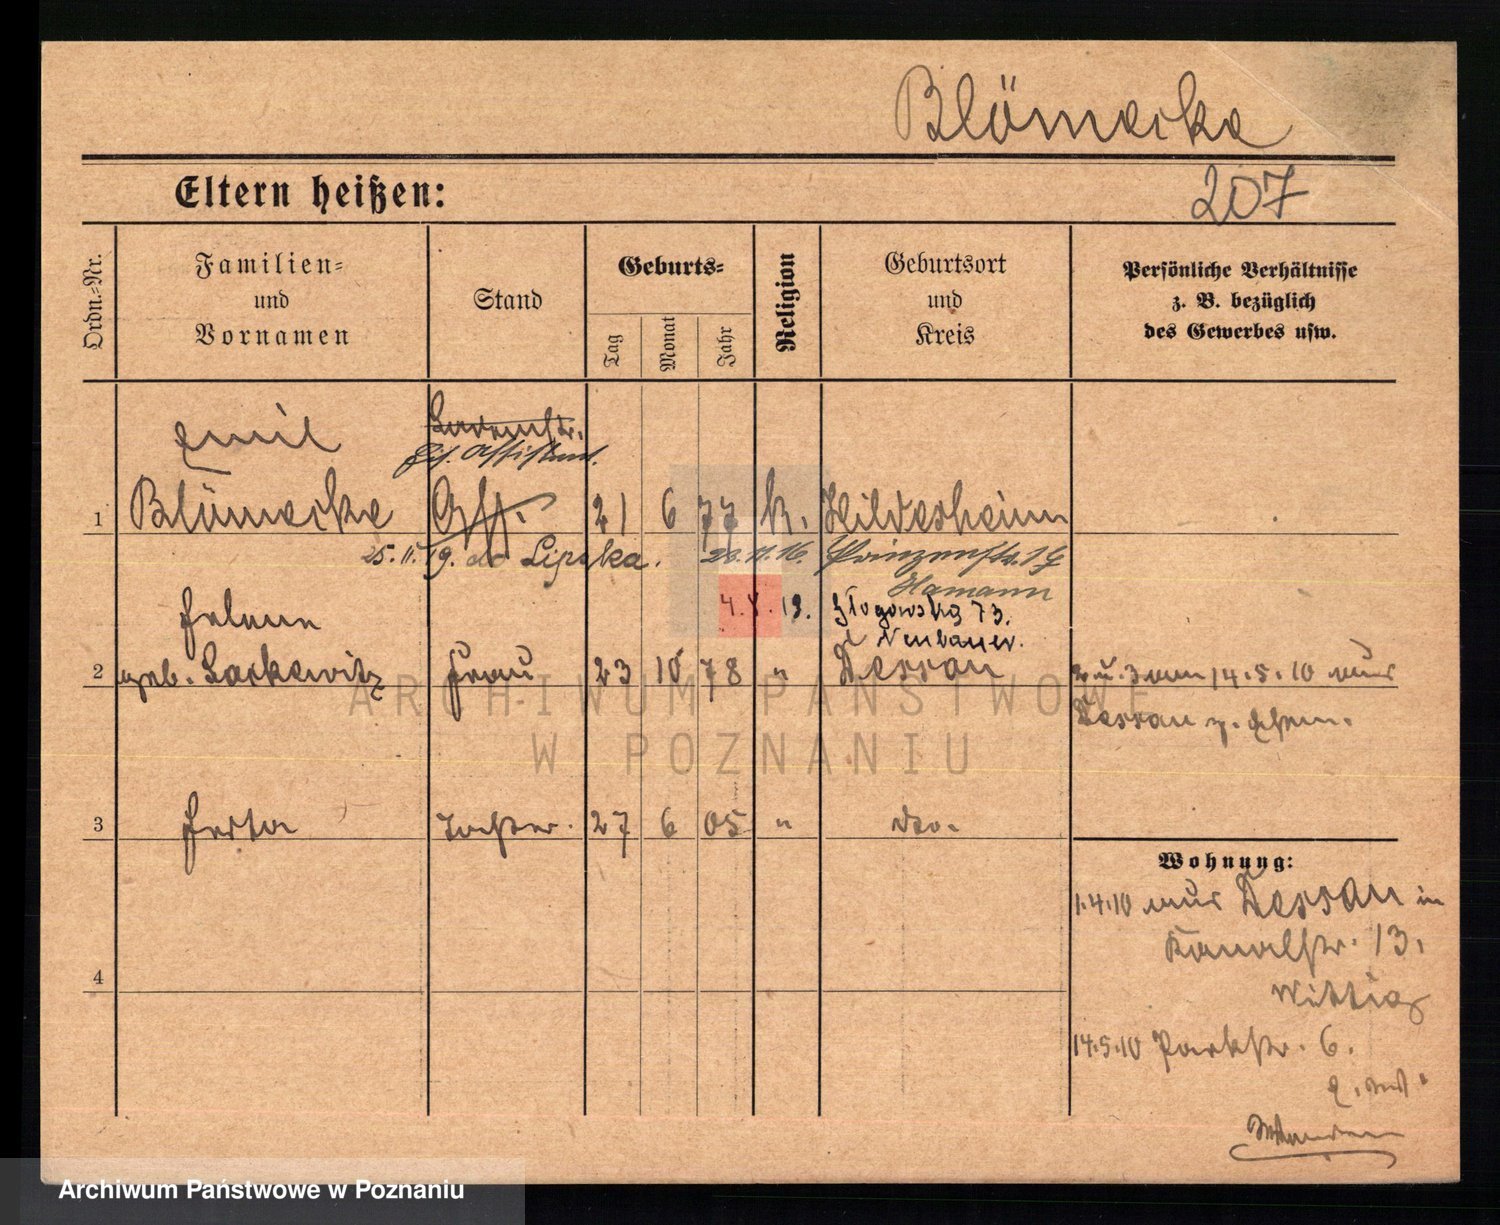 Blömecke
Eltern heißen:
207
Ordn.=Nr.
Familien=
und
Vornamen
Stand
Geburts=
Tag
Monat
Jahr
Religion
Geburtsort
und
Kreis
Persönliche Verhältnisse
z. B. bezüglich
des Gewerbes usw.
Emil
Assistent.
1 Blümecke 21 6 77 k. Hildesheim
25. 11. 19. do Lipska. 20. 11. 16. Prinzenstr. 19
Hamann
4. X. 19. Głogowska 73.
Neubauer.
Helene
2 geb. Laskewitz Frau 23 10 78 " Dessau
2 u. 3 am 14.5.10 aus
Dessau z. Ehem.
3 Herta Tochter. 27 6 05 " do.
Wohnung:
1.4.10 aus Dessau in
Kanalstr. 13.
Wittig
4
14.5.10 Parkstr. 6.
ARCHIWUM PAŃSTWOWE
W POZNANIU
Archiwum Państwowe w Poznaniu